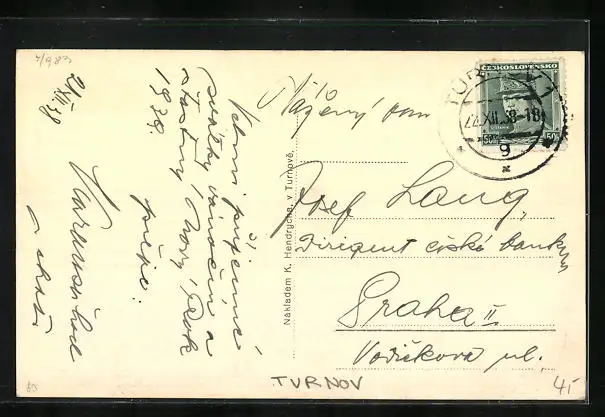 4/983
21/XII 38
Velmi příjemné
svátky vánoční a
šťastný Nový Rok
1939.
přeje
a choť
Nákladem K. Hendrycha, v Turnově.
31.
Vážený pan
Josef Lang,
Dirigent české banky
Praha II
Vodičkova ul.
ČESKOSLOVENSKO
TURNOV 1
22.XII.38-18
9
50
50
TURNOV
45